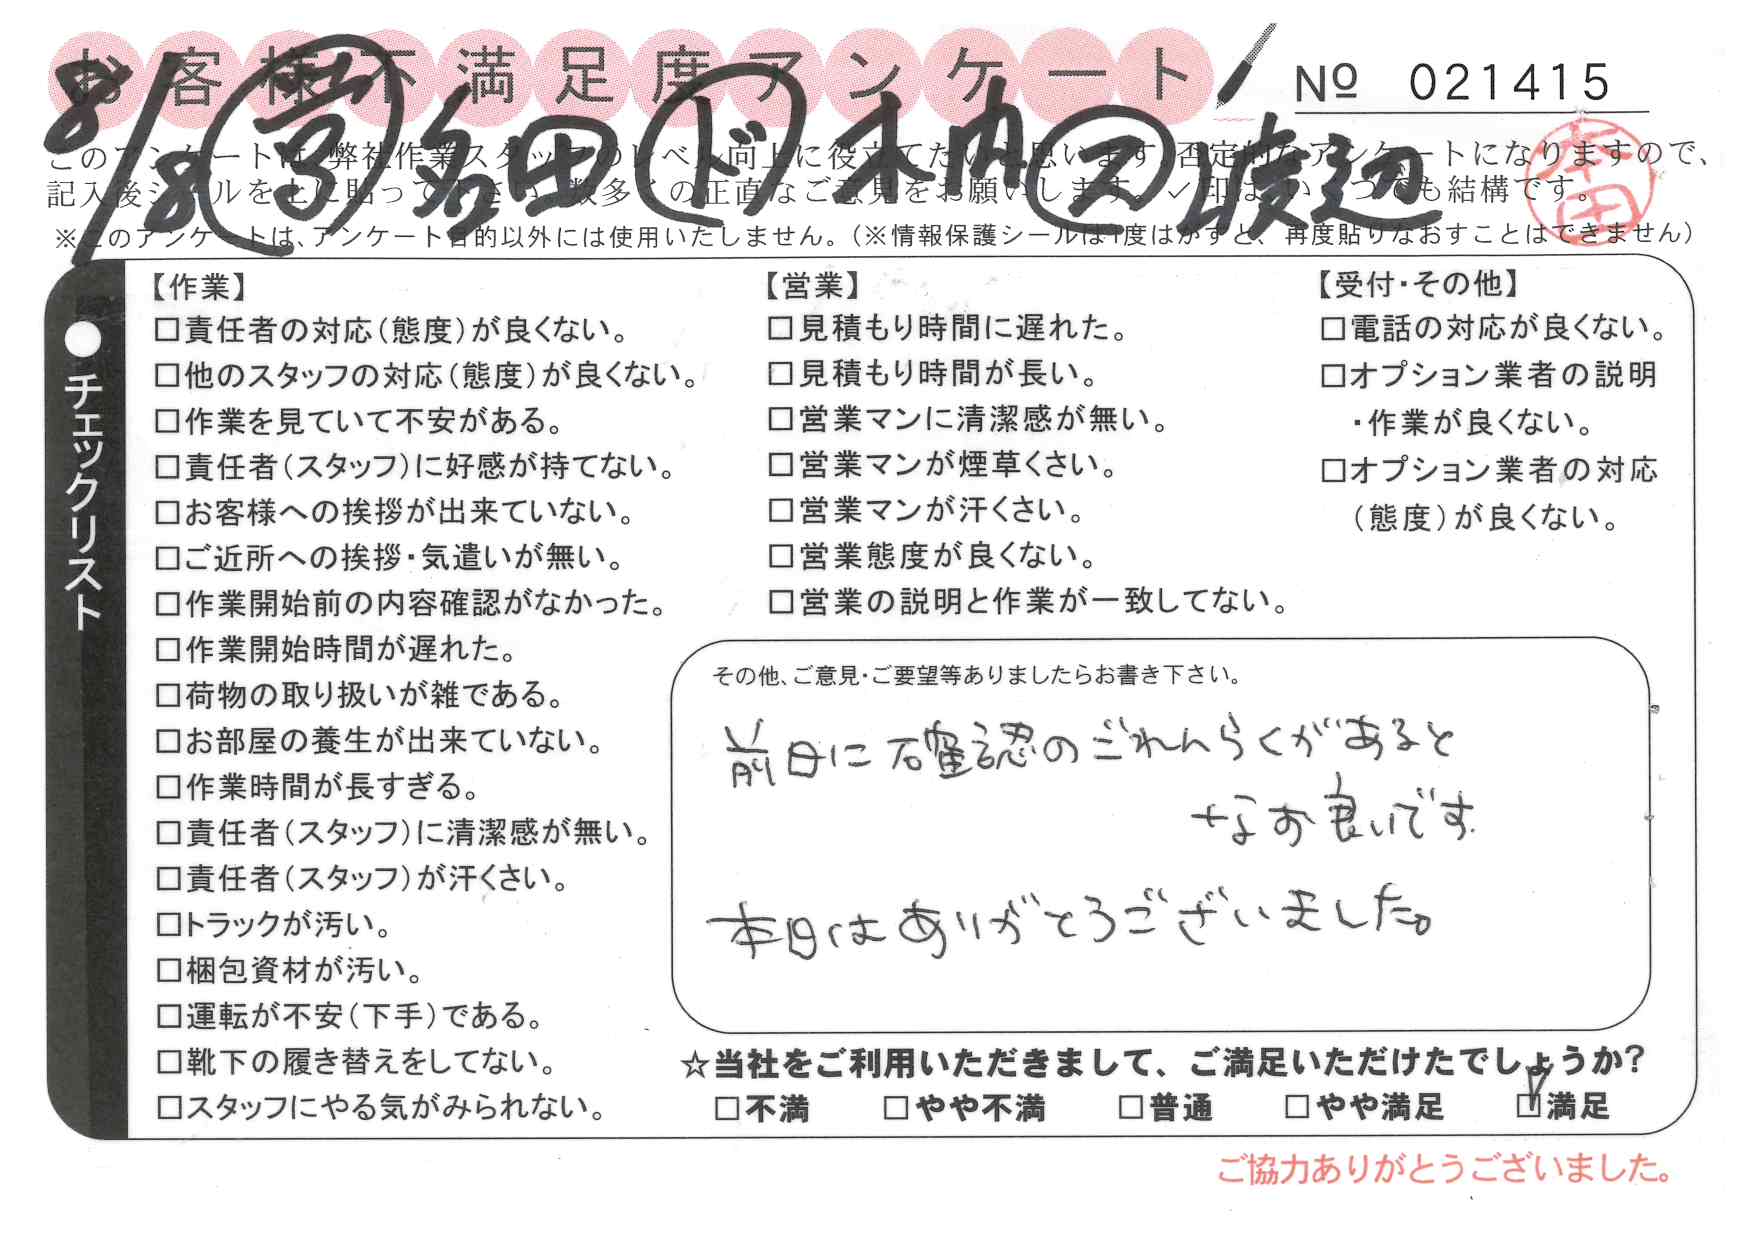 お客様不満足度アンケート
№ 021415
8/8 営 名田 ド 木内 ス 渡辺
本田
このアンケートは、弊社作業スタッフのレベル向上に役立てたいと思います。否定的なアンケートになりますので、
記入後シールを上に貼って下さい。数多くの正直なご意見をお願いします。✓印はいくつでも結構です。
※このアンケートは、アンケート目的以外には使用いたしません。(※情報保護シールは1度はがすと、再度貼りなおすことはできません)
●チェックリスト
【作業】
□責任者の対応(態度)が良くない。
□他のスタッフの対応(態度)が良くない。
□作業を見ていて不安がある。
□責任者(スタッフ)に好感が持てない。
□お客様への挨拶が出来ていない。
□ご近所への挨拶・気遣いが無い。
□作業開始前の内容確認がなかった。
□作業開始時間が遅れた。
□荷物の取り扱いが雑である。
□お部屋の養生が出来ていない。
□作業時間が長すぎる。
□責任者(スタッフ)に清潔感が無い。
□責任者(スタッフ)が汗くさい。
□トラックが汚い。
□梱包資材が汚い。
□運転が不安(下手)である。
□靴下の履き替えをしてない。
□スタッフにやる気がみられない。
【営業】
□見積もり時間に遅れた。
□見積もり時間が長い。
□営業マンに清潔感が無い。
□営業マンが煙草くさい。
□営業マンが汗くさい。
□営業態度が良くない。
□営業の説明と作業が一致してない。
【受付・その他】
□電話の対応が良くない。
□オプション業者の説明
・作業が良くない。
□オプション業者の対応
(態度)が良くない。
その他、ご意見・ご要望等ありましたらお書き下さい。
前日に確認のごれんらくがあると
なお良いです
本日はありがとうございました。
☆当社をご利用いただきまして、ご満足いただけたでしょうか?
□不満 □やや不満 □普通 □やや満足 ☑満足
ご協力ありがとうございました。